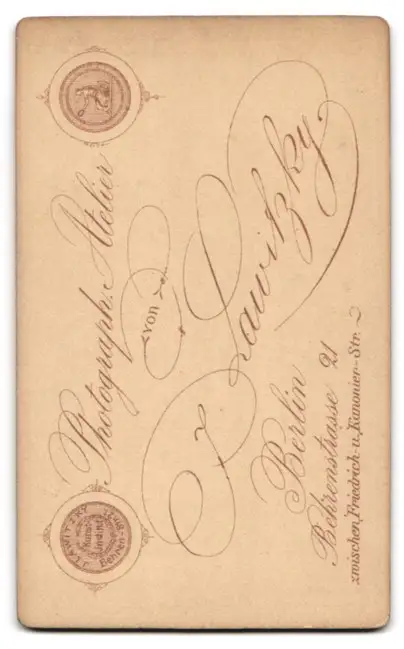 Photograph. Atelier
von
J. Lawitzky
Berlin
Behrenstrasse 21
zwischen Friedrich- u. Kanonier-Str.
J. LAWITZKY
Behren-